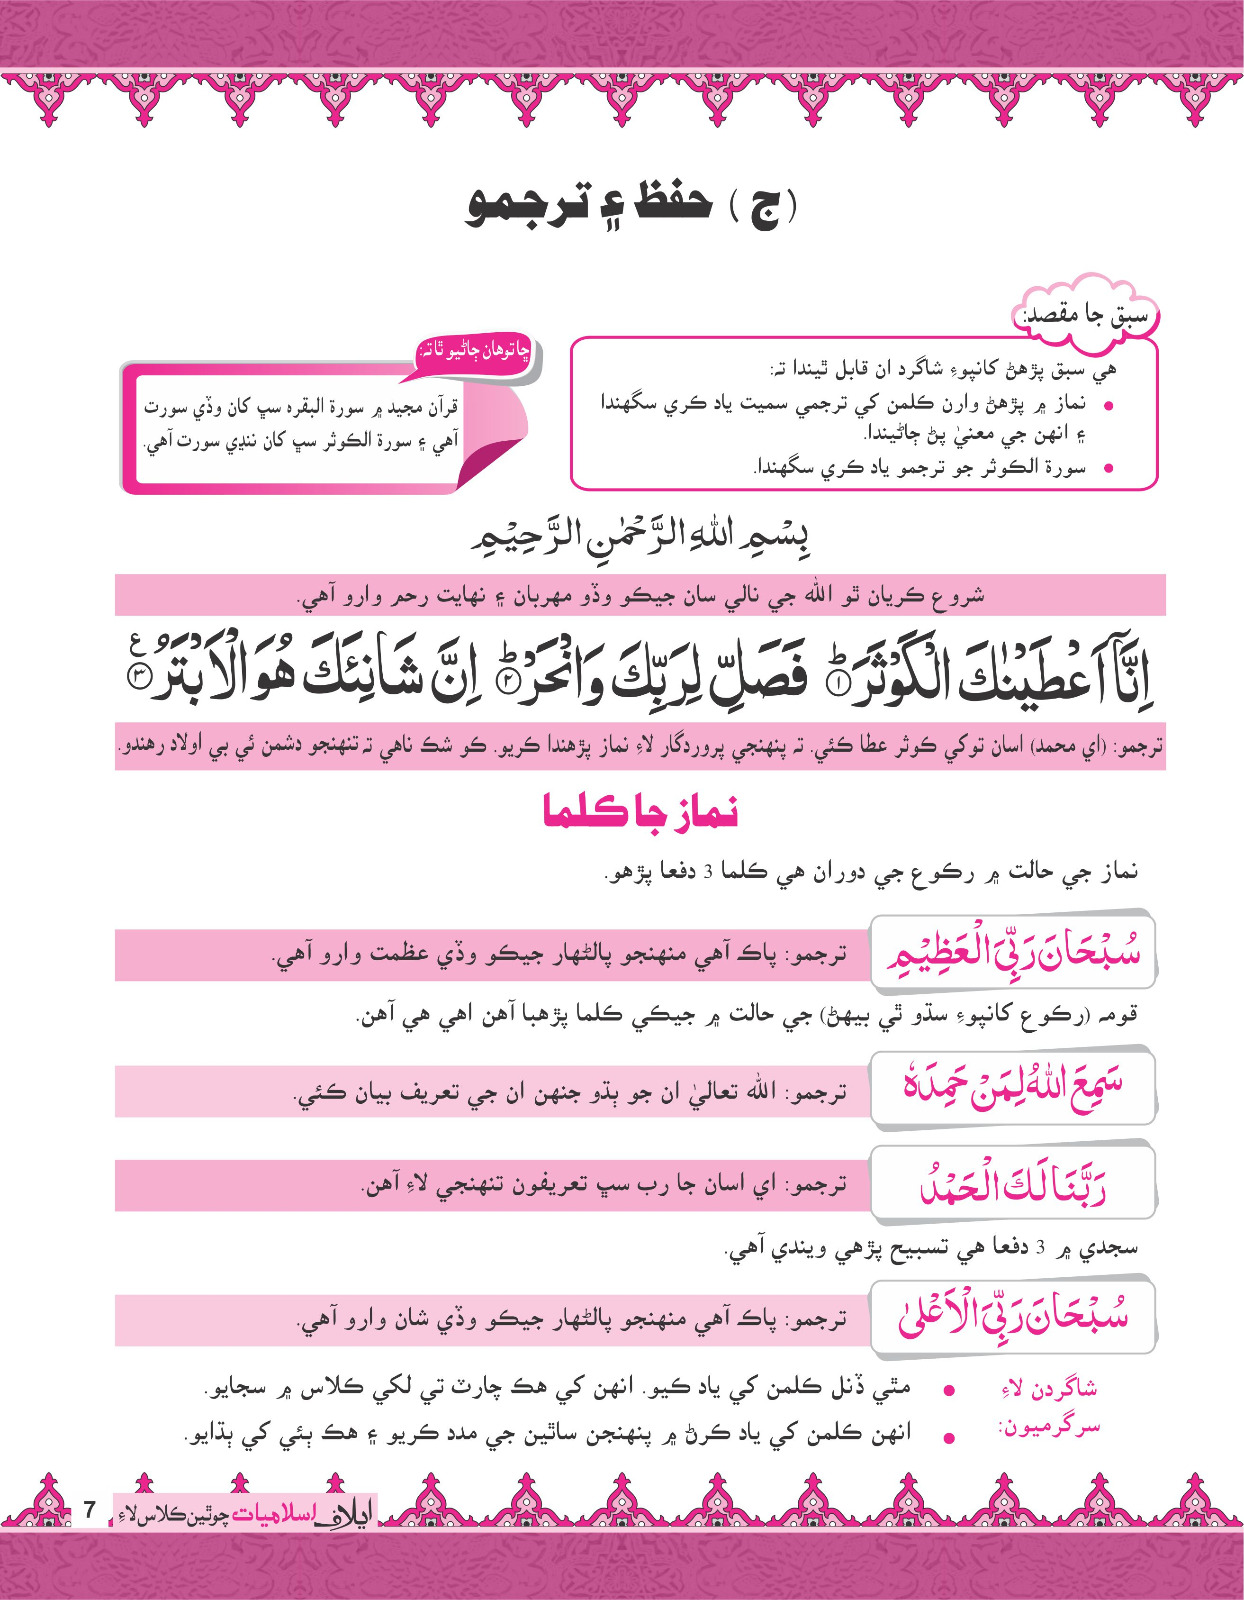 (ج) حفظ ۽ ترجمو
سبق جا مقصد:
هي سبق پڙهڻ کانپوءِ شاگرد ان قابل ٿيندا ته:
• نماز ۾ پڙهڻ وارن ڪلمن کي ترجمي سميت ياد ڪري سگهندا
۽ انهن جي معنيٰ پڻ ڄاڻيندا.
• سورة الڪوثر جو ترجمو ياد ڪري سگهندا.
ڇا توهان ڄاڻيو ٿا ته:
قرآن مجيد ۾ سورة البقره سڀ کان وڏي سورت
آهي ۽ سورة الڪوثر سڀ کان ننڍي سورت آهي.
بِسْمِ اللهِ الرَّحْمٰنِ الرَّحِيْمِ
شروع ڪريان ٿو الله جي نالي سان جيڪو وڏو مهربان ۽ نهايت رحم وارو آهي.
اِنَّآ اَعْطَيْنٰكَ الْكَوْثَرَ ؕ﴿۱﴾ فَصَلِّ لِرَبِّكَ وَانْحَرْ ؕ﴿۲﴾ اِنَّ شَانِئَكَ هُوَ الْاَبْتَرُ ﴿۳﴾ ع
ترجمو: (اي محمد) اسان توکي ڪوثر عطا ڪئي. ته پنهنجي پروردگار لاءِ نماز پڙهندا ڪريو. ڪو شڪ ناهي ته تنهنجو دشمن ئي بي اولاد رهندو.
نماز جا ڪلما
نماز جي حالت ۾ رڪوع جي دوران هي ڪلما 3 دفعا پڙهو.
سُبْحَانَ رَبِّيَ الْعَظِيْمِ
ترجمو: پاڪ آهي منهنجو پالڻهار جيڪو وڏي عظمت وارو آهي.
قومه (رڪوع کانپوءِ سڌو ٿي بيهڻ) جي حالت ۾ جيڪي ڪلما پڙهبا آهن اهي هي آهن.
سَمِعَ اللهُ لِمَنْ حَمِدَهٗ
ترجمو: الله تعاليٰ ان جو ٻڌو جنهن ان جي تعريف بيان ڪئي.
رَبَّنَا لَكَ الْحَمْدُ
ترجمو: اي اسان جا رب سڀ تعريفون تنهنجي لاءِ آهن.
سجدي ۾ 3 دفعا هي تسبيح پڙهي ويندي آهي.
سُبْحَانَ رَبِّيَ الْاَعْلىٰ
ترجمو: پاڪ آهي منهنجو پالڻهار جيڪو وڏي شان وارو آهي.
شاگردن لاءِ
سرگرميون:
• مٿي ڏنل ڪلمن کي ياد ڪيو. انهن کي هڪ چارٽ تي لکي ڪلاس ۾ سجايو.
• انهن ڪلمن کي ياد ڪرڻ ۾ پنهنجن ساٿين جي مدد ڪريو ۽ هڪ ٻئي کي ٻڌايو.
ايلاف اسلاميات چوٿين ڪلاس لاءِ
7